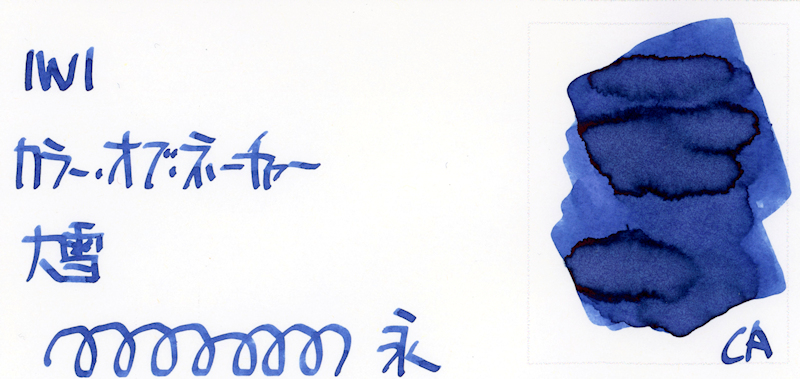 IWI
カラー・オブ・ネーチャー
大雪
永
CA